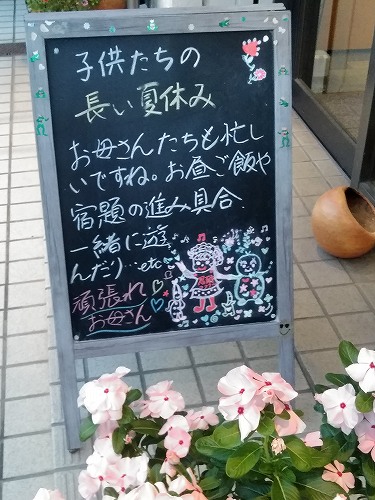 子供たちの
長い夏休み
お母さんたちも忙し
いですね。お昼ご飯や
宿題の進み具合、
一緒に遊
んだり…etc
頑張れ
お母さん